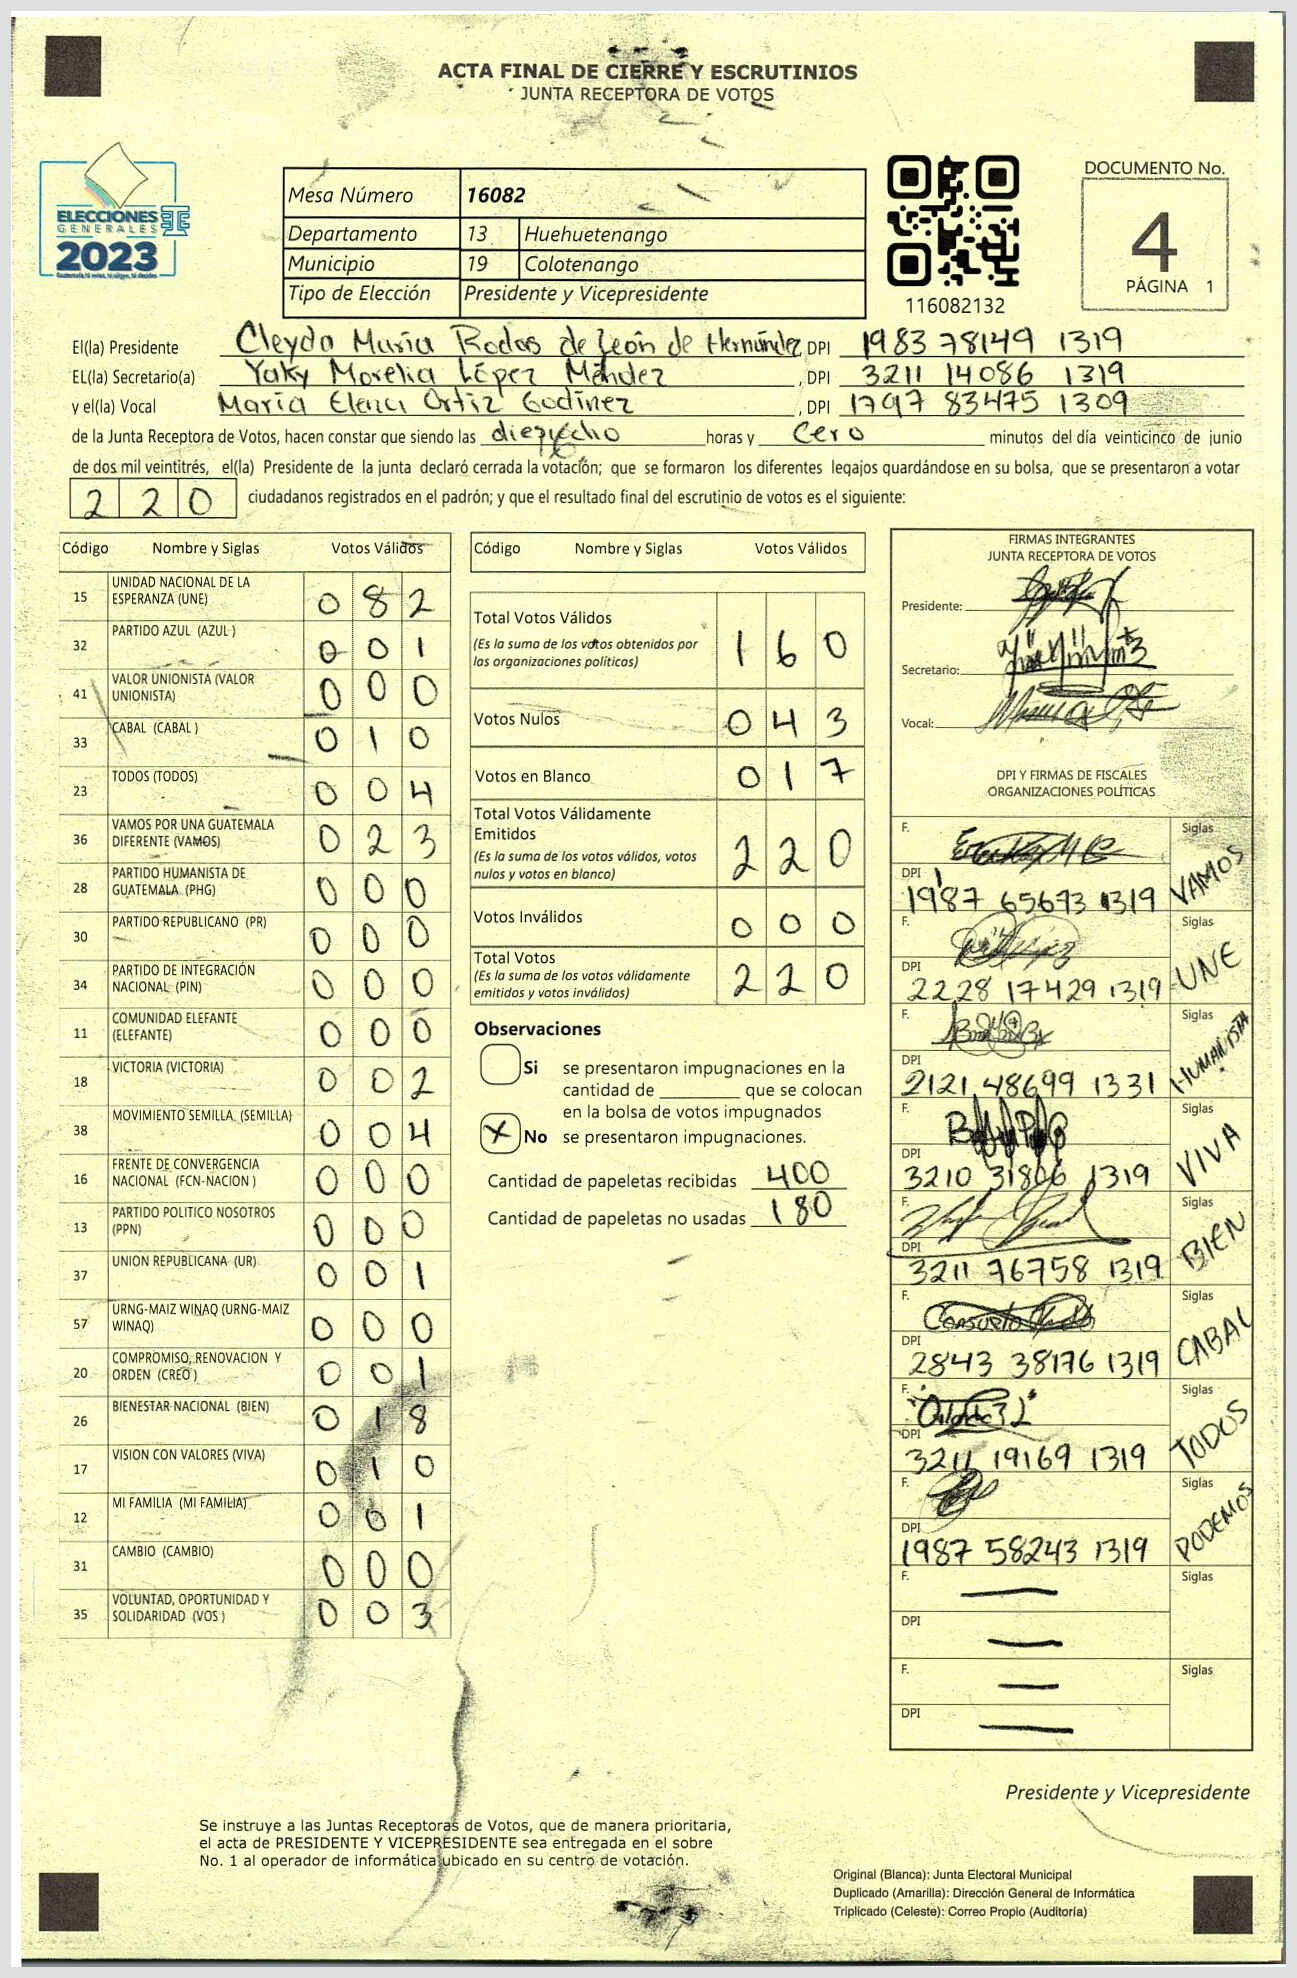 ACTA FINAL DE CIERRE Y ESCRUTINIOS
JUNTA RECEPTORA DE VOTOS
ELECCIONES
GENERALES
2023
Mesa Número 16082
Departamento 13 Huehuetenango
Municipio 19 Colotenango
Tipo de Elección Presidente y Vicepresidente
116082132
DOCUMENTO No.
4
PÁGINA 1
El(la) Presidente Cleyda María Rodas de León de Hernández, DPI 1983 78149 1319
EL(la) Secretario(a) Yaky Morelia López Méndez, DPI 3211 14086 1319
y el(la) Vocal María Elena Ortiz Godínez, DPI 1797 83475 1309
de la Junta Receptora de Votos, hacen constar que siendo las dieciocho horas y cero minutos del día veinticinco de junio
de dos mil veintitrés, el(la) Presidente de la junta declaró cerrada la votación; que se formaron los diferentes legajos guardándose en su bolsa, que se presentaron a votar
220 ciudadanos registrados en el padrón; y que el resultado final del escrutinio de votos es el siguiente:
Código Nombre y Siglas Votos Válidos
15 UNIDAD NACIONAL DE LA ESPERANZA (UNE) 082
32 PARTIDO AZUL (AZUL ) 001
41 VALOR UNIONISTA (VALOR UNIONISTA) 000
33 CABAL (CABAL ) 010
23 TODOS (TODOS) 004
36 VAMOS POR UNA GUATEMALA DIFERENTE (VAMOS) 023
28 PARTIDO HUMANISTA DE GUATEMALA (PHG) 000
30 PARTIDO REPUBLICANO (PR) 000
34 PARTIDO DE INTEGRACIÓN NACIONAL (PIN) 000
11 COMUNIDAD ELEFANTE (ELEFANTE) 000
18 VICTORIA (VICTORIA) 002
38 MOVIMIENTO SEMILLA (SEMILLA) 004
16 FRENTE DE CONVERGENCIA NACIONAL (FCN-NACION ) 000
13 PARTIDO POLITICO NOSOTROS (PPN) 000
37 UNION REPUBLICANA (UR) 001
57 URNG-MAIZ WINAQ (URNG-MAIZ WINAQ) 000
20 COMPROMISO, RENOVACION Y ORDEN (CREO ) 001
26 BIENESTAR NACIONAL (BIEN) 018
17 VISION CON VALORES (VIVA) 010
12 MI FAMILIA (MI FAMILIA) 001
31 CAMBIO (CAMBIO) 000
35 VOLUNTAD, OPORTUNIDAD Y SOLIDARIDAD (VOS ) 003
Código Nombre y Siglas Votos Válidos
Total Votos Válidos 160
(Es la suma de los votos obtenidos por
las organizaciones políticas)
Votos Nulos 043
Votos en Blanco 017
Total Votos Válidamente
Emitidos 220
(Es la suma de los votos válidos, votos
nulos y votos en blanco)
Votos Inválidos 000
Total Votos 220
(Es la suma de los votos válidamente
emitidos y votos inválidos)
Observaciones
Si se presentaron impugnaciones en la
cantidad de ________ que se colocan
en la bolsa de votos impugnados
X No se presentaron impugnaciones.
Cantidad de papeletas recibidas 400
Cantidad de papeletas no usadas 180
FIRMAS INTEGRANTES
JUNTA RECEPTORA DE VOTOS
Presidente:
Secretario:
Vocal:
DPI Y FIRMAS DE FISCALES
ORGANIZACIONES POLÍTICAS
F. Siglas VAMOS
DPI 1987 65673 1319
F. Siglas UNE
DPI 2228 17429 1319
F. Siglas HUMANISTA
DPI 2121 48699 1331
F. Siglas VIVA
DPI 3210 31806 1319
F. Siglas BIEN
DPI 3211 76758 1319
F. Siglas CABAL
DPI 2843 38176 1319
F. Siglas TODOS
DPI 3211 19169 1319
F. Siglas PODEMOS
DPI 1987 58243 1319
F. Siglas
DPI
F. Siglas
DPI
Presidente y Vicepresidente
Se instruye a las Juntas Receptoras de Votos, que de manera prioritaria,
el acta de PRESIDENTE Y VICEPRESIDENTE sea entregada en el sobre
No. 1 al operador de informática ubicado en su centro de votación.
Original (Blanca): Junta Electoral Municipal
Duplicado (Amarilla): Dirección General de Informática
Triplicado (Celeste): Correo Propio (Auditoría)